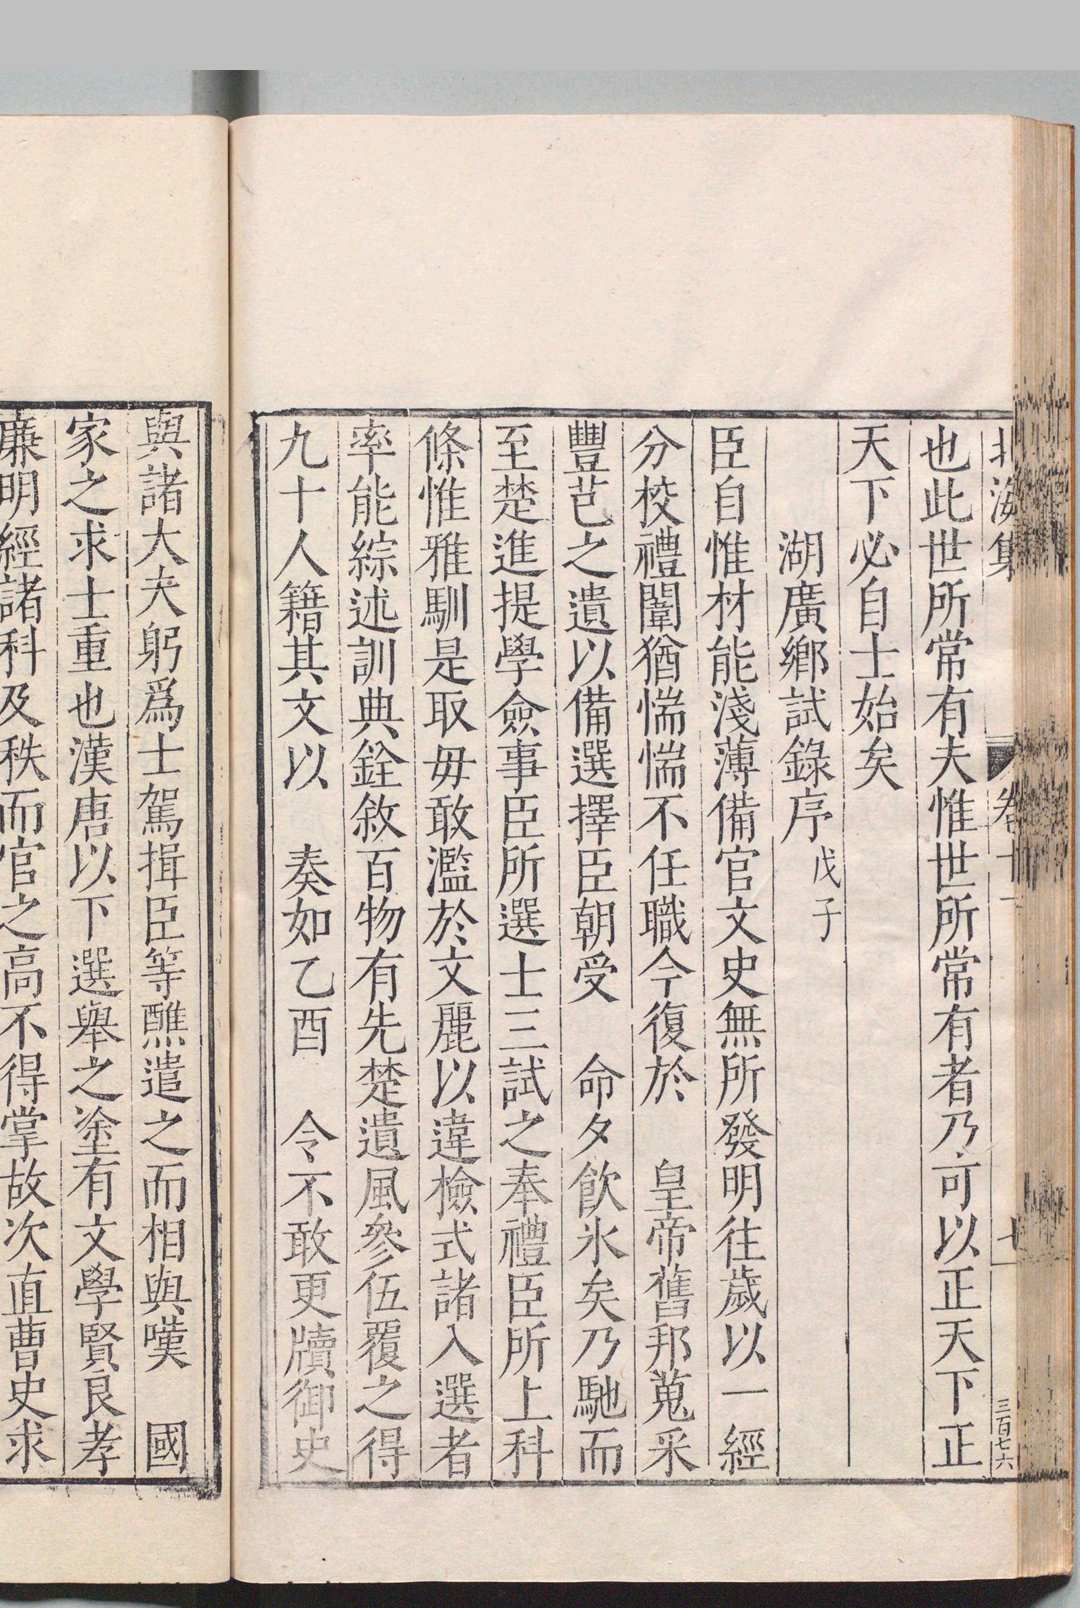 北海集 卷十一 七 三百七六
也此世所常有夫惟世所常有者乃可以正天下正
天下必自士始矣
湖廣鄉試錄序戊子
臣自惟材能淺薄備官文史無所發明往歲以一經
分校禮闈猶惴惴不任職今復於 皇帝舊邦蒐釆
豐芑之遺以備選擇臣朝受 命夕飲氷矣乃馳而
至楚進提學僉事臣所選士三試之奉禮臣所上科
條惟雅馴是取毋敢濫於文麗以違檢式諸入選者
率能綜述訓典銓敘百物有先楚遺風參伍覆之得
九十人籍其文以 奏如乙酉 令不敢更牘御史
與諸大夫躬爲士駕揖臣等醮遣之而相與嘆 國
家之求士重也漢唐以下選舉之塗有文學賢良孝
廉明經諸科及秩而官之高不得掌故次直曹史求